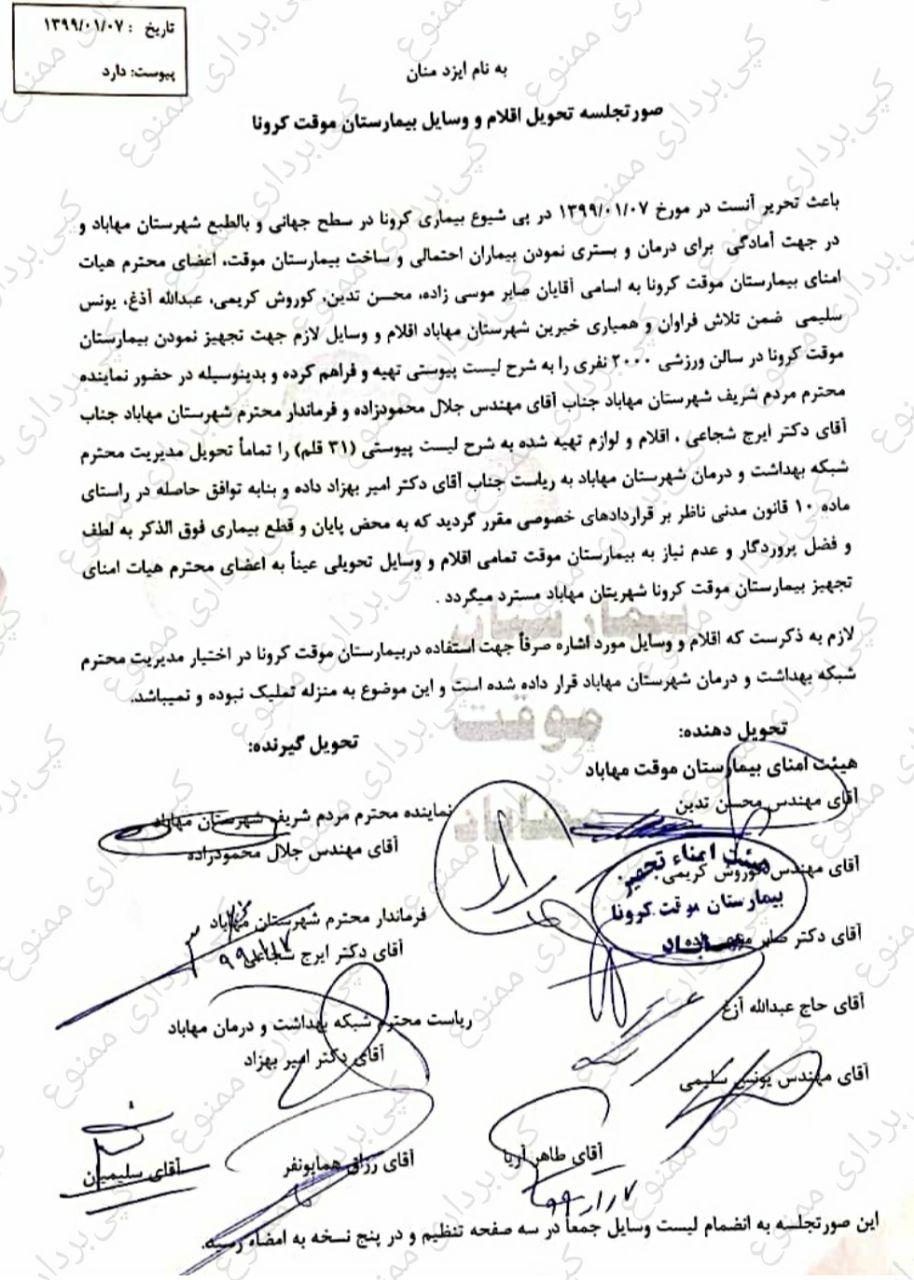 تاریخ : ۱۳۹۹/۰۱/۰۷
پیوست: دارد
به نام ایزد منان
صورتجلسه تحویل اقلام و وسایل بیمارستان موقت کرونا
باعث تحریر آنست در مورخ ۱۳۹۹/۰۱/۰۷ در پی شیوع بیماری کرونا در سطح جهانی و بالطبع شهرستان مهاباد و
در جهت آمادگی برای درمان و بستری نمودن بیماران احتمالی و ساخت بیمارستان موقت، اعضای محترم هیات
امنای بیمارستان موقت کرونا به اسامی آقایان صابر موسی زاده، محسن تدین، کوروش کریمی، عبدالله آذغ، یونس
سلیمی ضمن تلاش فراوان و همیاری خیرین شهرستان مهاباد اقلام و وسایل لازم جهت تجهیز نمودن بیمارستان
موقت کرونا در سالن ورزشی ۲۰۰۰ نفری را به شرح لیست پیوستی تهیه و فراهم کرده و بدینوسیله در حضور نماینده
محترم مردم شریف شهرستان مهاباد جناب آقای مهندس جلال محمودزاده و فرماندار محترم شهرستان مهاباد جناب
آقای دکتر ایرج شجاعی ، اقلام و لوازم تهیه شده به شرح لیست پیوستی (۳۱ قلم) را تماماً تحویل مدیریت محترم
شبکه بهداشت و درمان شهرستان مهاباد به ریاست جناب آقای دکتر امیر بهزاد داده و بنابه توافق حاصله در راستای
ماده ۱۰ قانون مدنی ناظر بر قراردادهای خصوصی مقرر گردید که به محض پایان و قطع بیماری فوق الذکر به لطف
و فضل پروردگار و عدم نیاز به بیمارستان موقت تمامی اقلام و وسایل تحویلی عیناً به اعضای محترم هیات امنای
تجهیز بیمارستان موقت کرونا شهریتان مهاباد مسترد میگردد .
لازم به ذکرست که اقلام و وسایل مورد اشاره صرفاً جهت استفاده دربیمارستان موقت کرونا در اختیار مدیریت محترم
شبکه بهداشت و درمان شهرستان مهاباد قرار داده شده است و این موضوع به منزله تملیک نبوده و نمیباشد.
بیمارستان
موقت
مهاباد
تحویل دهنده:
هیئت امنای بیمارستان موقت مهاباد
آقای مهندس محسن تدین
آقای مهندس کوروش کریمی
آقای دکتر صابر
آقای حاج عبدالله آزغ
آقای مهندس یونس سلیمی
هیئت امناء تجهیز
بیمارستان موقت کرونا
مهاباد
تحویل گیرنده:
نماینده محترم مردم شریف شهرستان مهاباد
آقای مهندس جلال محمودزاده
فرماندار محترم شهرستان مهاباد
آقای دکتر ایرج شجاعی
ریاست محترم شبکه بهداشت و درمان مهاباد
آقای دکتر امیر بهزاد
آقای طاهر آریا
آقای رزاق همایونفر
آقای سلیمیان
این صورتجلسه به انضمام لیست وسایل جمعاً در سه صفحه تنظیم و در پنج نسخه به امضاء رسید.
کپی‌برداری ممنوع